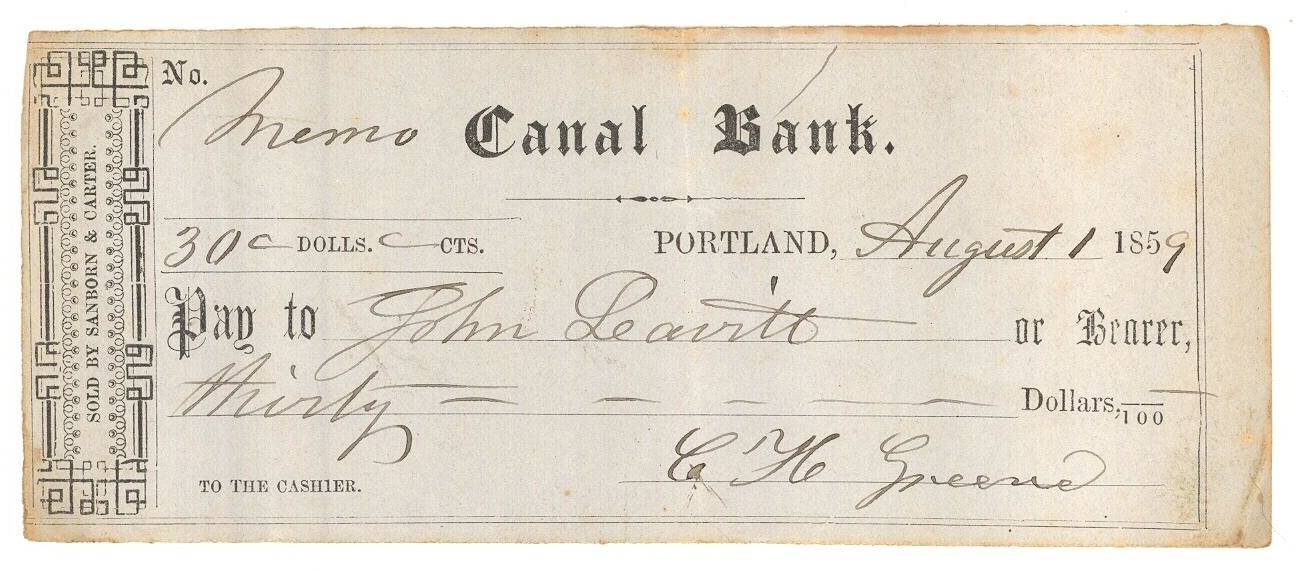 No.
Memo Canal Bank.
30 DOLLS. CTS. PORTLAND, August 1 1859
Pay to John Leavitt or Bearer,
thirty — — — — — — Dollars, —/100
C H Greene
TO THE CASHIER.
SOLD BY SANBORN & CARTER.